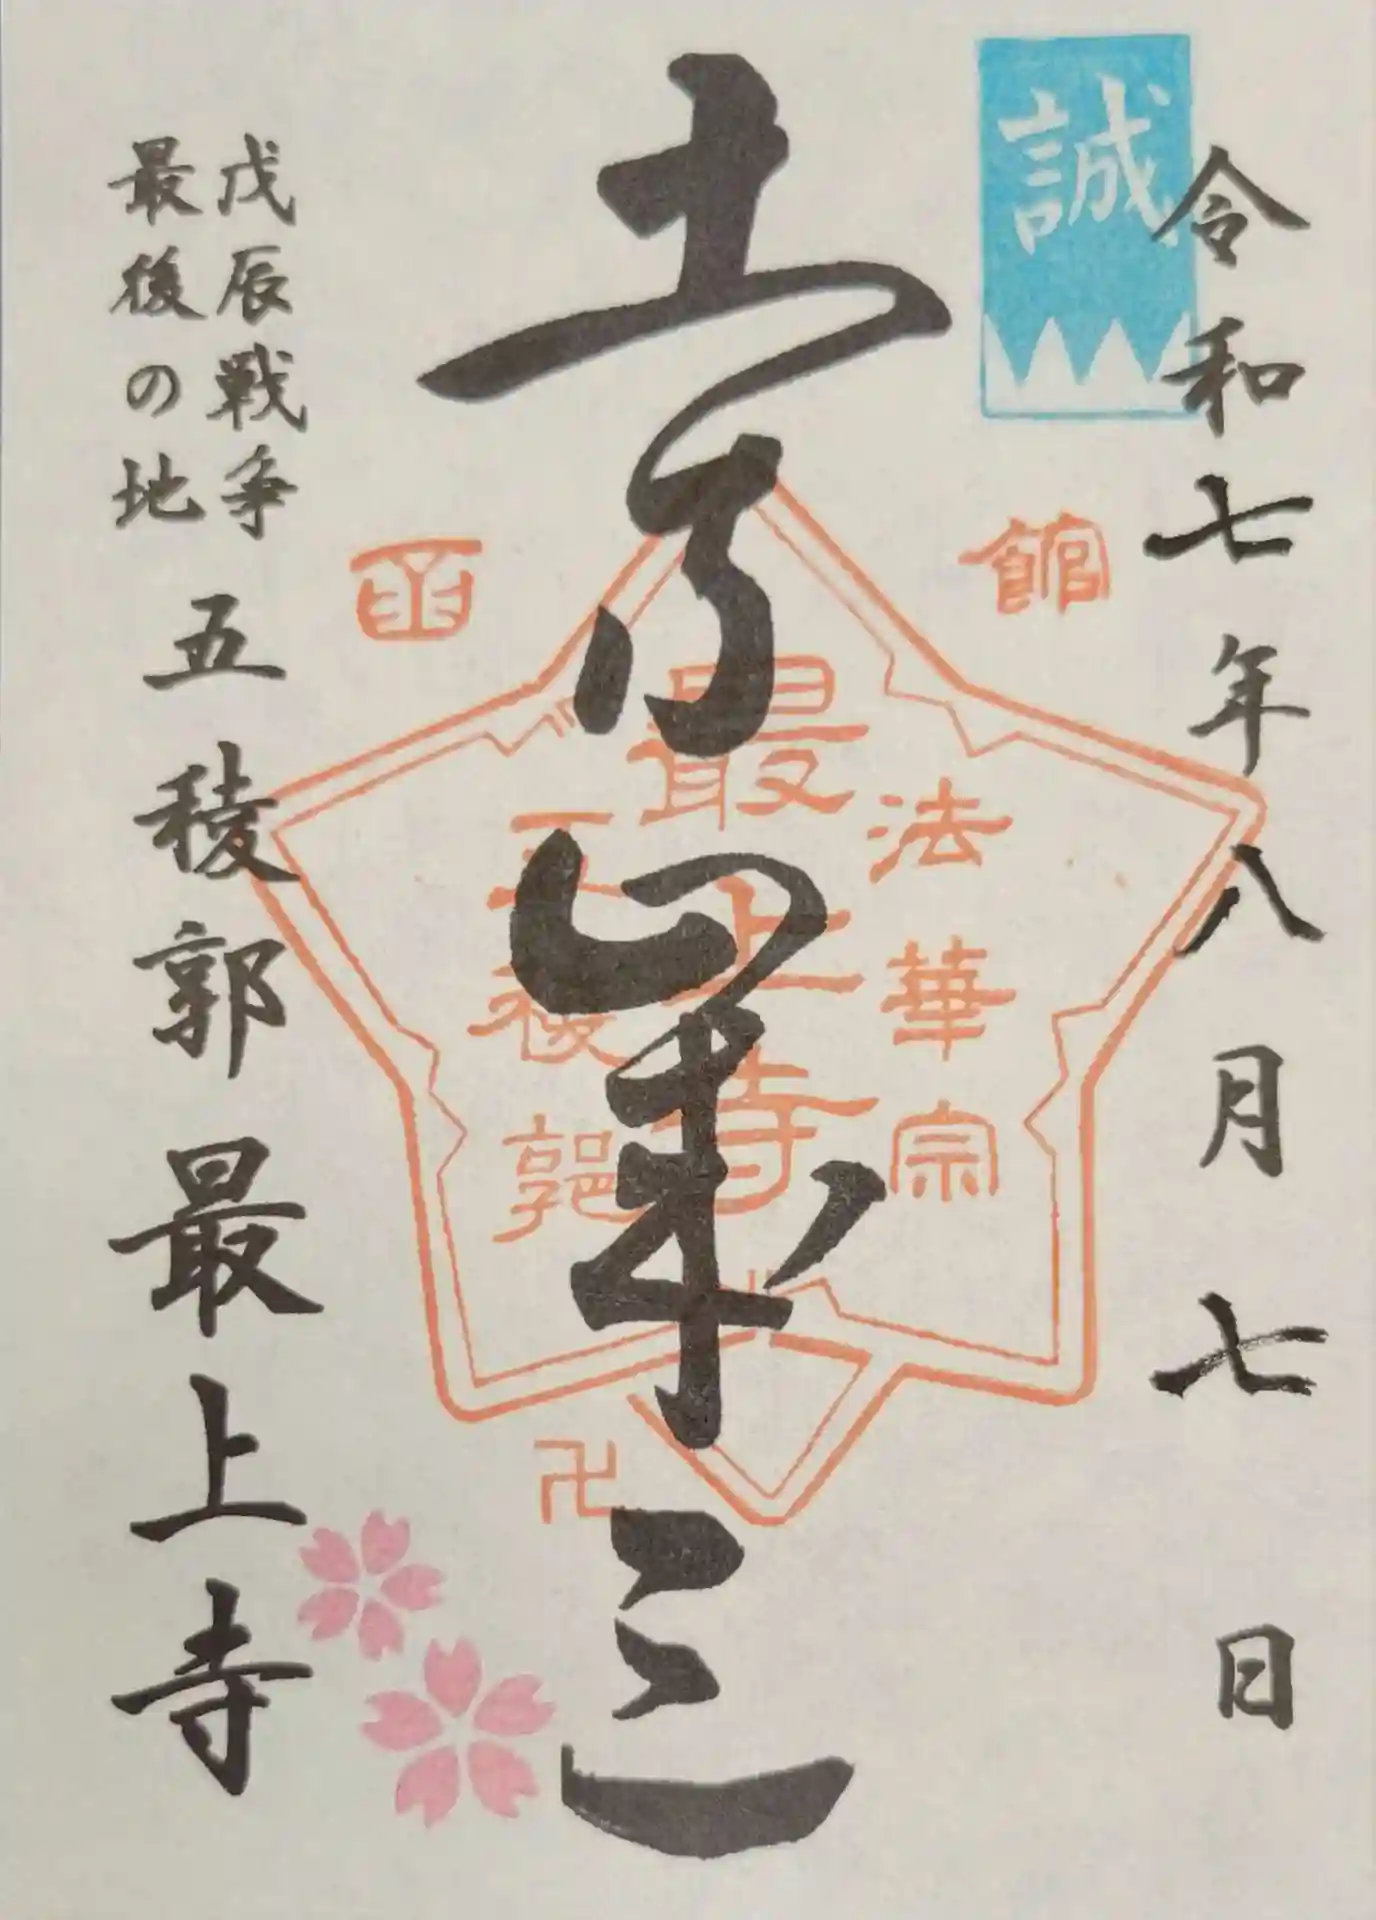 誠
令和七年八月七日
土方歳三
函館
法華宗
最上寺
五稜郭
卍
戊辰戦争
最後の地
五稜郭最上寺